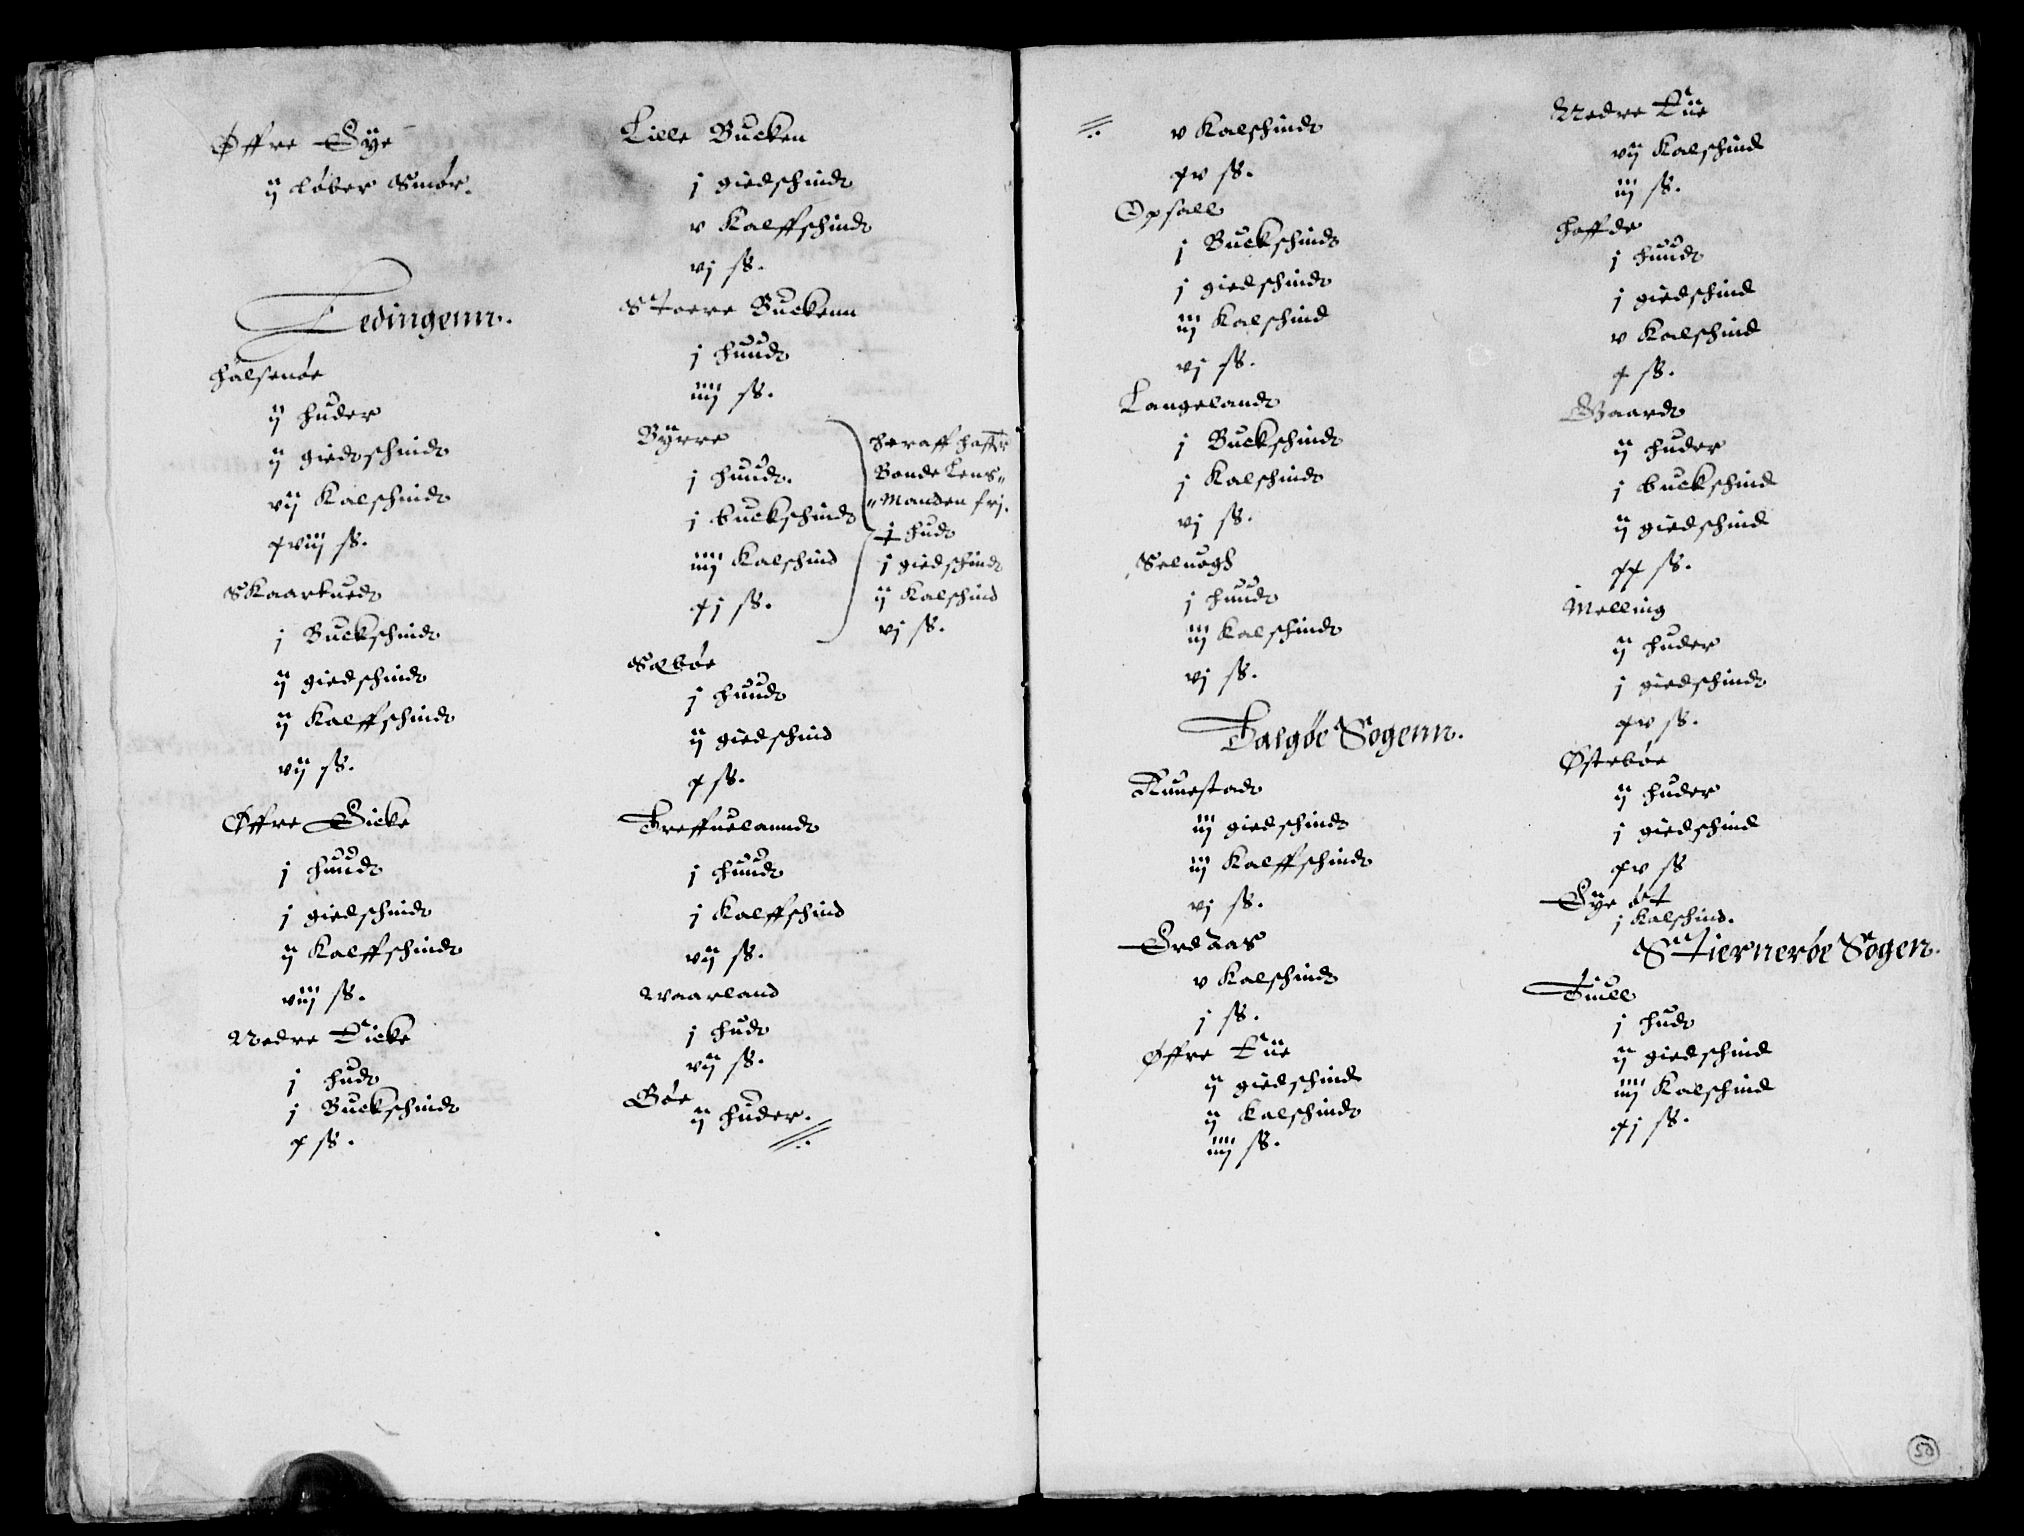 Øffre Eÿe
ij løber Smør.
Tedingenn.
Halsenøe
ij huder
ij giedschindt
vij Kalschindt
xviij ss.
Skaartuedt
j Buckschindt
ij giedschindt
ij Kalffschindt
vij ss.
Øffre Eicke
j huudt
j giedschindt
ij Kalffschindt
viij ss.
Nedre Eicke
j hudt
j Buckschindt
x ss.
Lille Bucken
j giedschindt
v Kalffschindt
vj ss.
Stoere Buckenn
j huudt
iiij ss.
Bÿrre
j huudt.
j buckschindt
iiij Kalschind
xj ss.
heraff haffr
Bonde Lens
Manden frj.
j hudt
j giedschindt
ij Kalschind
vj ss.
Sæbøe
j huudt
ij giedschind
x ss.
Treffuelanndt
j huudt
j Kalffschind
vij ss.
Waarland
j hudt
vij ss.
Bøe
ij huder.
v Kalschindt
xv ss.
Opsall
j Buckschindt
j giedschindt
iij Kalschind
vj ss.
Langelandt
j Buckschindt
j Kalschindt
vj ss.
Seluogh
j huudt
iij Kalschindt
vj ss.
Talgøe Sogenn.
Tunestadt
iij giedschindt
iij Kalffschindt
vj ss.
Erdaas
v Kalschindt
j ss.
Øffre Tue
ij giedschind
ij Kalschindt
iiij ss.
Nedre Tue
vij Kalschind
iij ss.
Haffde
j huudt
j giedschind
v Kalschind
x ss.
Gaardt
ij huder
j buckschind
ij giedschind
xx ss.
Melling
ij huder
j giedschindt
xv ss.
Østebøe
ij huder
j giedschind
xv ss
Eÿe øt
j Kalschind.
Stiernerøe Sogen.
Tuell
j hudt
ij giedschind
iiij Kalschind
xj ss.
50